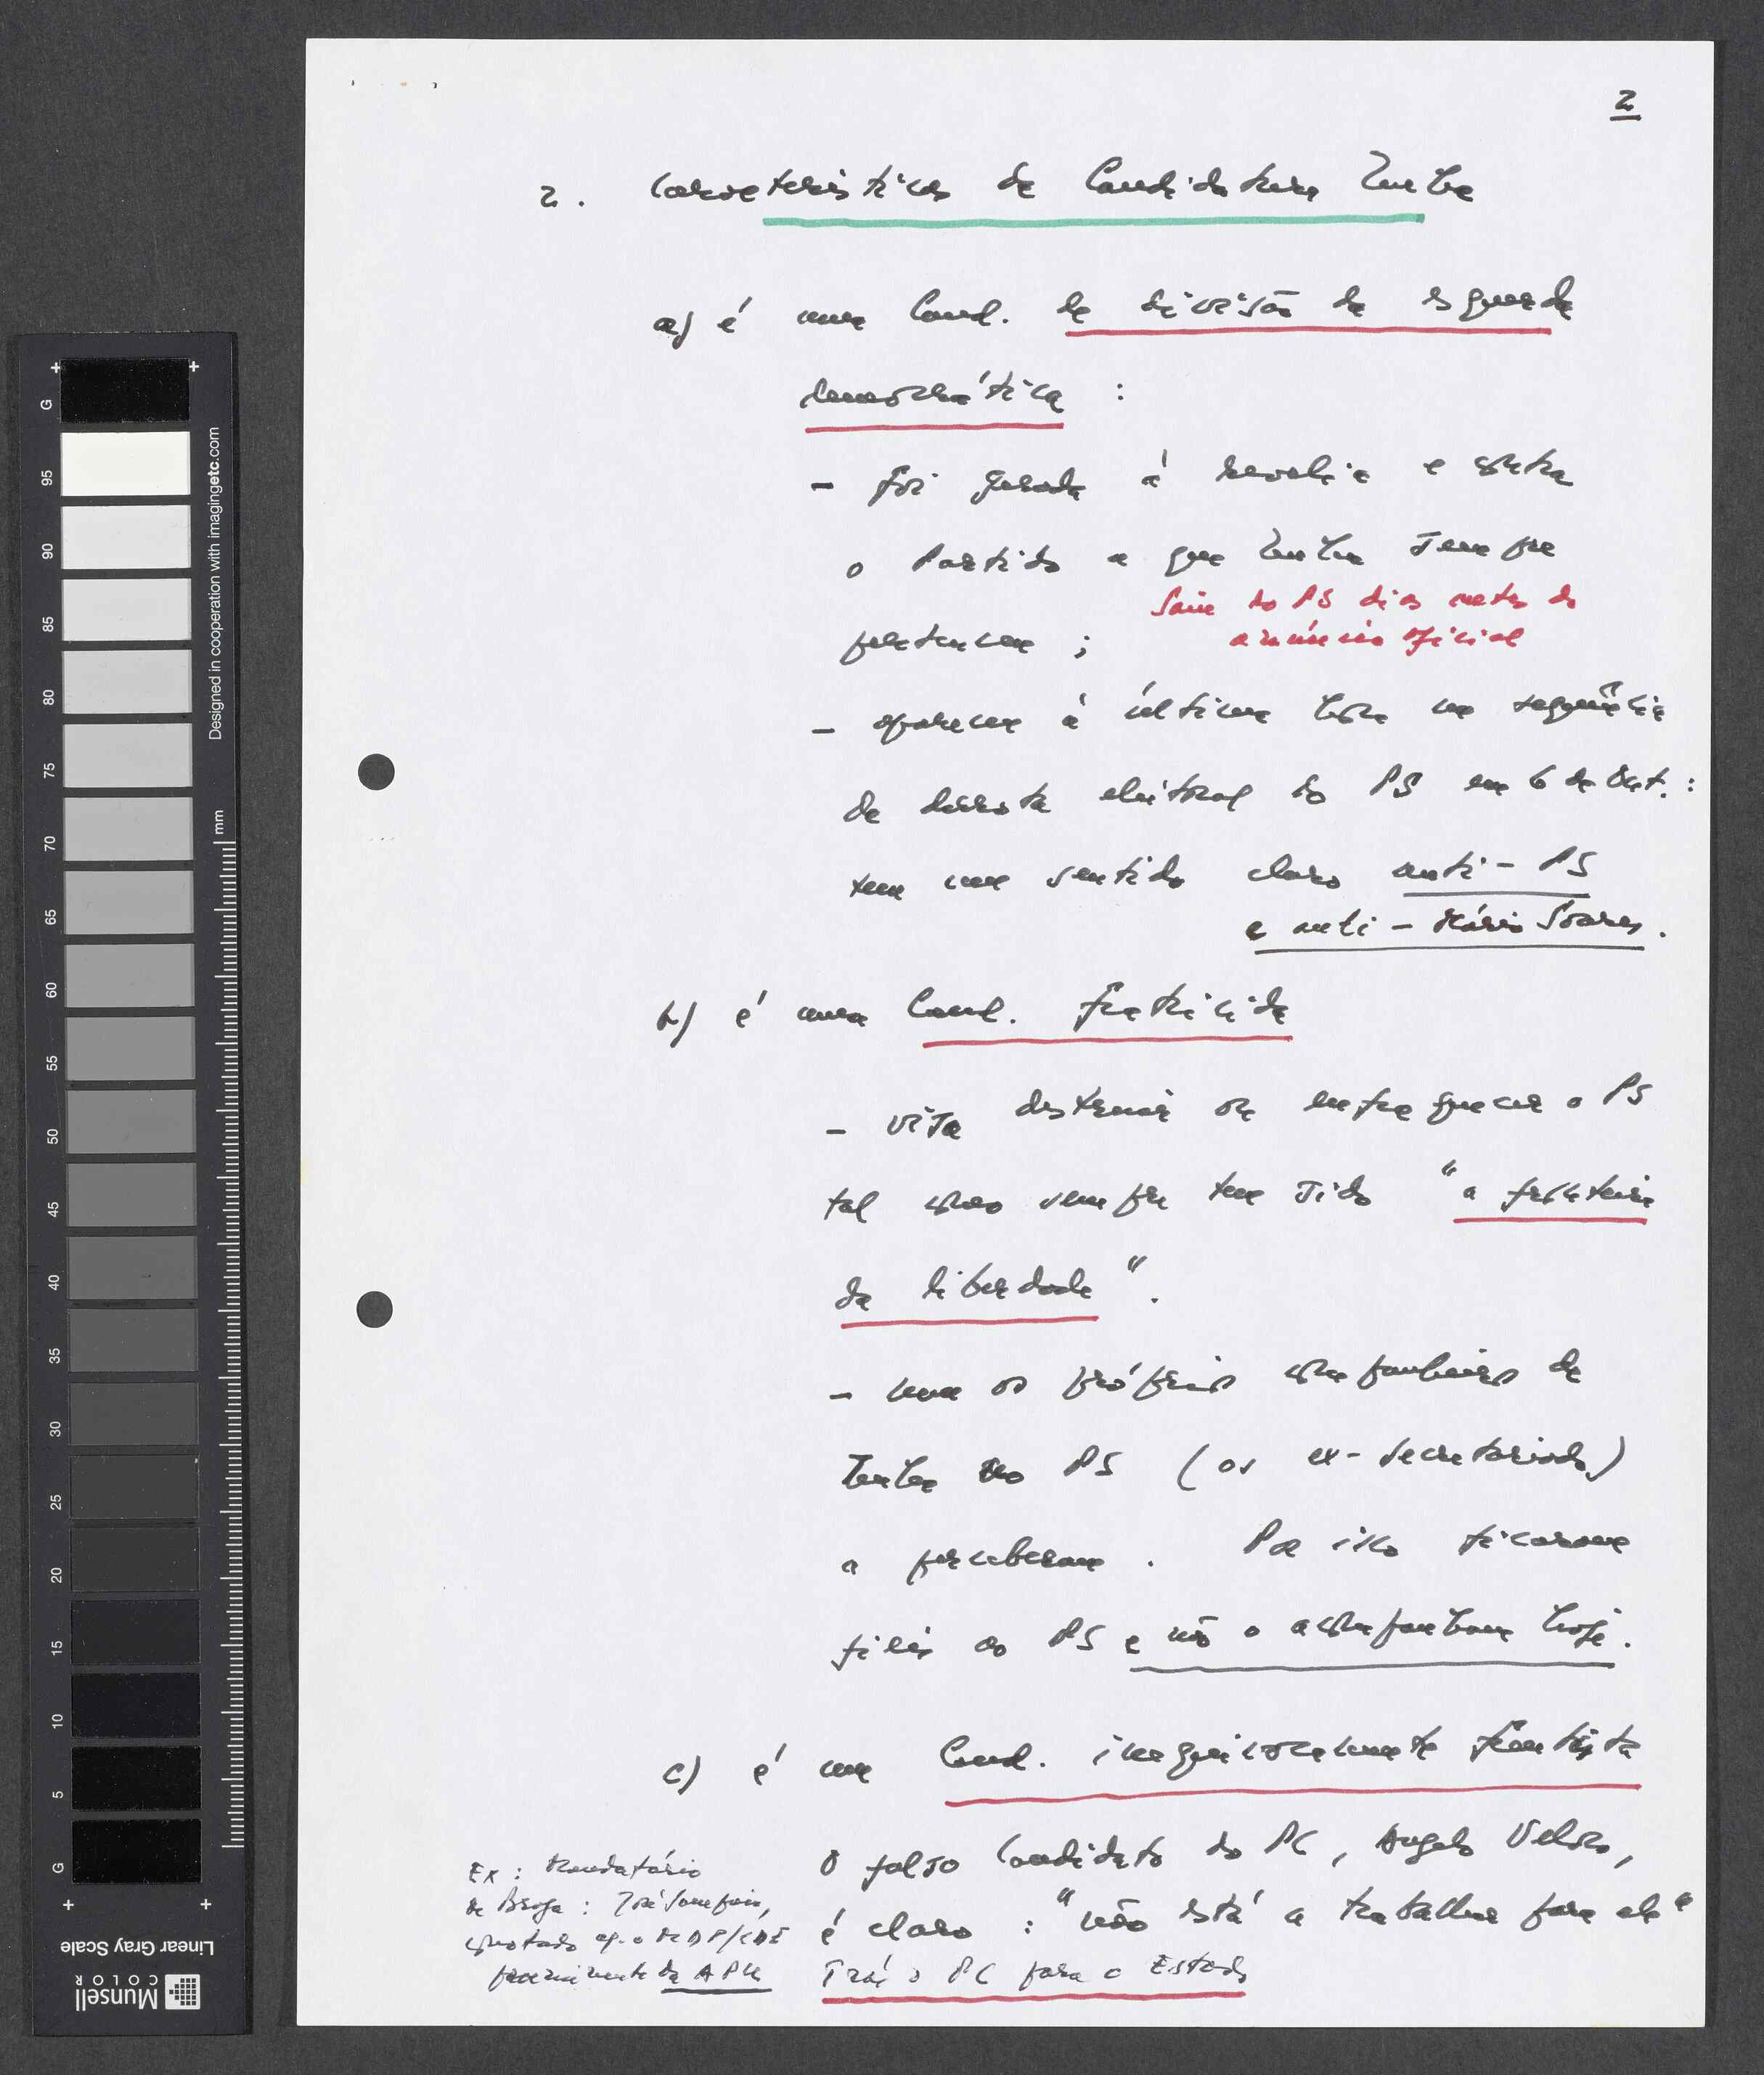 2
2. Características da Candidatura Zenha
a) é uma Cand. de divisão da esquerda
democrática :
- foi gerada à revelia e contra
o Partido a que Zenha sempre
Saiu do PS dias antes do
anúncio oficial
pertenceu ;
- aparece à última hora na sequência
da derrota eleitoral do PS em 6 de Out. :
tem um sentido claro anti-PS
e anti-Mário Soares.
b) é uma Cand. fratricida
- visa destruir ou enfraquecer o PS
tal como sempre tem sido "a fronteira
da liberdade".
- nem os próprios companheiros de
Zenha no PS (os ex-secretariado)
a perceberam. Por isso ficaram
fiéis ao PS e não o acompanham hoje.
c) é uma Cand. inequivocamente frentista
O falso Candidato do PC, Angelo Veloso,
é claro : "não está a trabalhar para ele"
Trás o PC para o Estado
Ex : Mandatário
de Braga : José Sampaio,
conotado c/ o MDP/CDE
proeminente da APU
G 95 90 85 80 75 70 65 60 55 50 45 40 35 30 25 20 15 10 5 G
mm
Designed in cooperation with imagingetc.com
Linear Gray Scale
Munsell
COLOR